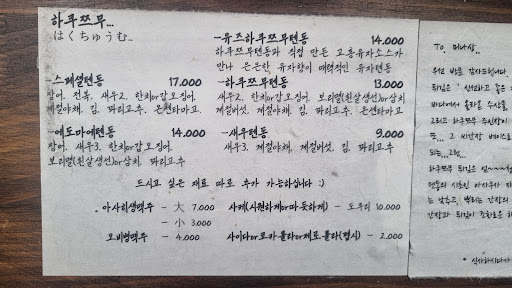 하쿠쯔무...
はくちゅうむ...
-유즈하쿠쯔무텐동 14.000
하쿠쯔무텐동과 직접 만든 고흥유자소스가
만나 은은한 유자향이 매력적인 유자텐동
-스페셜텐동 17.000
장어. 전복. 새우2. 한치or갑오징어.
제철야채. 김. 꽈리고추. 온센타마고.
-하쿠쯔무텐동 13.000
새우2. 한치or갑오징어. 보리멸(흰살생선)or삼치
제철버섯. 제철야채. 김. 꽈리고추. 온센타마고
-에도마에텐동 14.000
장어. 새우3. 한치or갑오징어.
보리멸(흰살생선)or삼치. 김. 꽈리고추
-새우텐동 9.000
새우3. 제철야채. 제철버섯. 김. 꽈리고추
드시고 싶은 재료 따로 추가 가능하십니다 :)
아사히생맥주 - 大 7.000
小 3.000
사케(시원하게or따뜻하게) - 도쿠리 10.000
오비병맥주 - 4.000
사이다or코카콜라or제로콜라(펩시) - 2.000
To. 미나상..
우선 방문 감사드립니다.
튀김은 '신선하고 좋은
바다에서 올라온 수산물
그리고 하쿠쯔무 주인장이